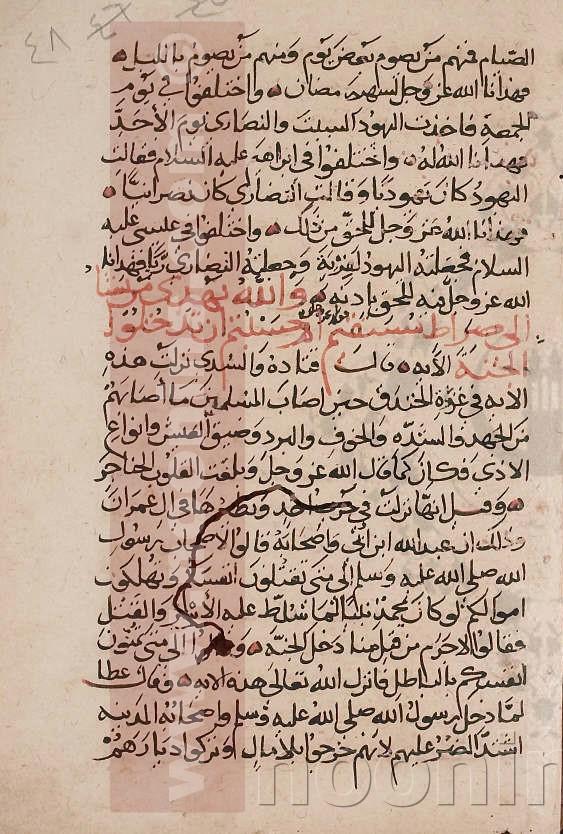 ٤٨
الصيام فمنهم من يصوم بعض يوم ومنهم من يصوم بالليل
فهدانا الله عز وجل لشهر رمضان واختلفوا في يوم
الجمعة فاخذت اليهود السبت والنصارى يوم الاحد
فهدانا الله له واختلفوا في ابراهيم عليه السلام فقالت
اليهود كان يهوديا وقالت النصارى كان نصرانيا
فهدانا الله عز وجل للحق من ذلك واختلفوا في عيسى عليه
السلام فجعلته اليهود لفرية وجعلته النصارى ربا فهدانا
الله عز وجل منه للحق باذنه والله يهدي من يشا
الى صراط مستقيم ام حسبتم ان تدخلوا
الجنة الآية قال قتادة والسدي نزلت هذه
الاية في غزوة الخندق حين اصاب المسلمين ما اصابهم
من الجهد والشدة والخوف والبرد وضيق العيش وانواع
الاذى فكان كما قال الله عز وجل وبلغت القلوب الحناجر
وقيل انها نزلت في حرب احد ونظيرها في ال عمران
وذلك ان عبد الله ابن ابي واصحابه قالوا لاصحاب رسول
الله صلى الله عليه وسلم الى متى تقتلون انفسكم وتهلكون
اموالكم لو كان محمد نبيا لما سلط عليه الأسر والقتل
فقالوا لا جرم من قتل منا دخل الجنة وقالوا الى متى تمنون
انفسكم بالباطل فانزل الله تعالى هذه الاية وقال عطا
لما دخل رسول الله صلى الله عليه وسلم واصحابه المدينة
اشتد الضر عليهم لانهم خرجوا بلا مال وتركوا ديارهم
www.
noonin